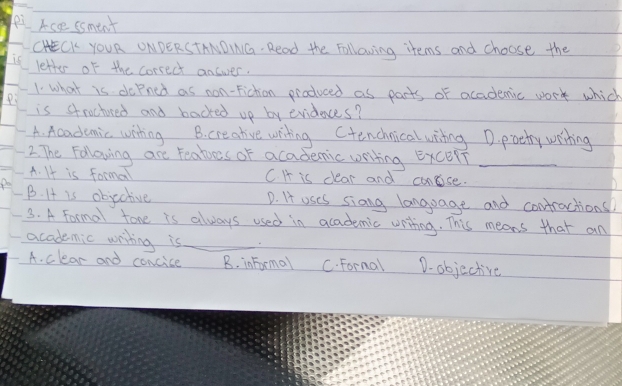 Assessment
CHECK YOUR UNDERSTANDING. Read the following items and choose the
letter of the correct answer.
1. what is defined as non-fiction produced as parts of academic work which
is structured and backed up by evidences?
A. Academic writing B. creative writing C tenchnical writing D. poetry writing
2. The Following are features of academic writing EXCEPT ______
A. It is formal C. It is clear and concise.
B. It is objective D. It uses slang language and contractions
3. A formal tone is always used in academic writing. This means that an
academic writing is ______.
A. clear and concise B. informal C. formal D. objective